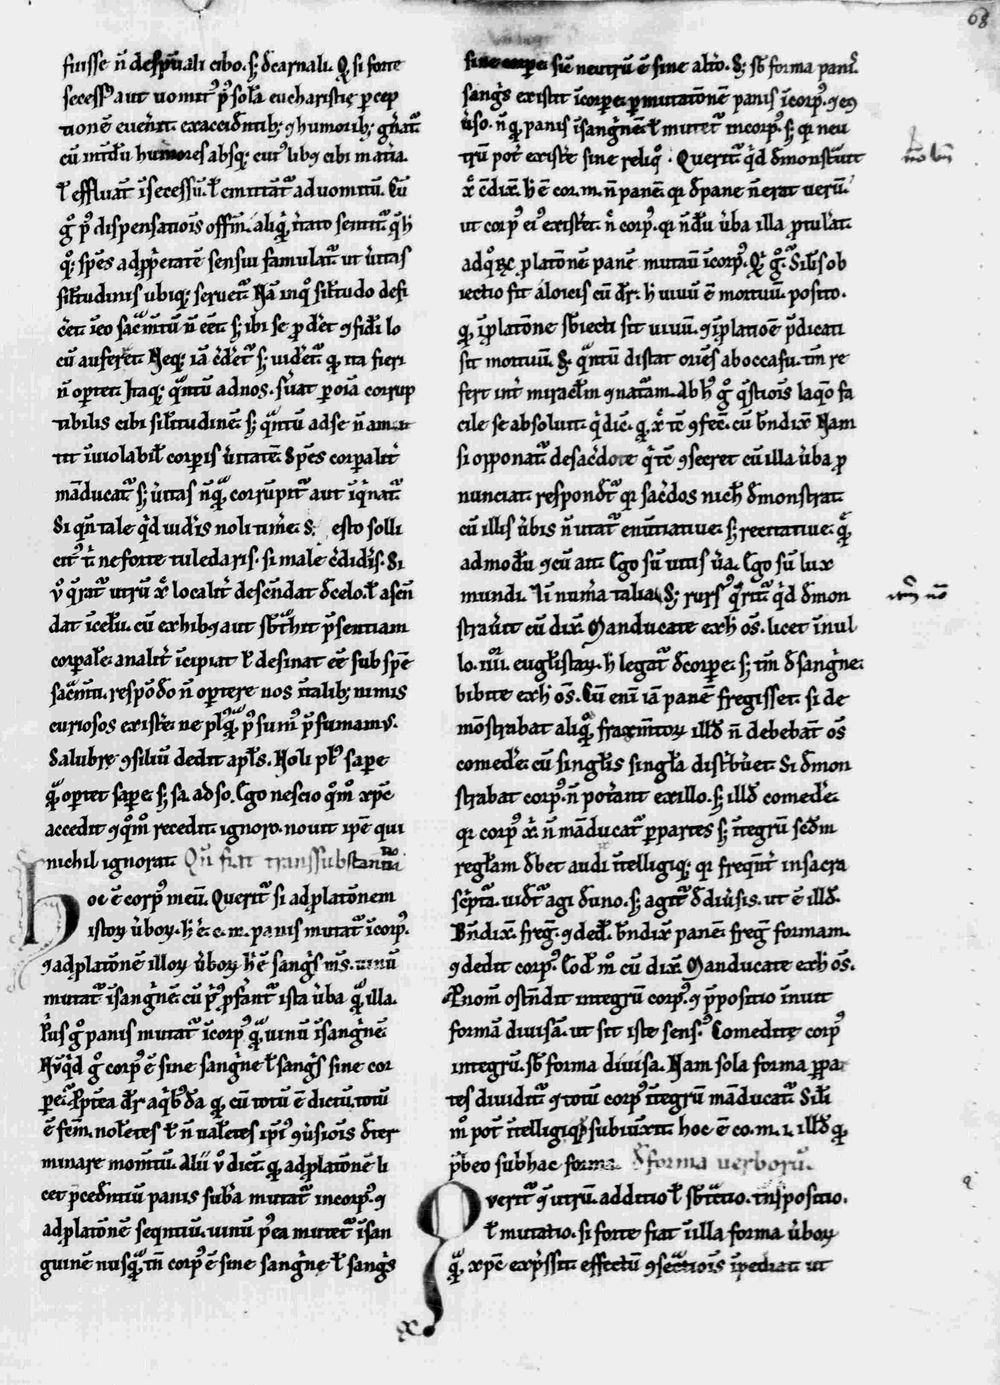 68
fuisse n̄ de spūali cibo. s; d̄ carnali. Qđ si forte
secessꝰ aut uomitꝰ p̓ solā eucharistię ꝑcep
tionē euen̄it. ex accidn̄tib; ⁊ humorib; gn̄atᷓ
cū int̄dū humores absq; cuiꝰlibꝫ cibi mat̄ia.
ł effluāt ī secessū. ł emittāt̄ ad uomitū. Cū
g̊ p̓ dispensatiōis offm̄. aliq̓d ītrato sentitᷓ
q; spēs ad ꝓp̓etatē sensui famulat̄ ut ūitas
silitudinis ubiq; seruet̄. Nā inqͦ similitudo defi
cēt. ieo sacm̄tū n̄ eēt. s; ibi se ꝓdēt ⁊ fidī lo
cū auferēt. Neq; iā c̄det̄ s; uidet̄. qđ ita fieri
n̄ oportet. Itaq; qᷓntū ad nos. seruat ꝑ oīa corrup
tibilis cibi silitudinē. s; qᷓntū ad se n̄ amit
tit īuiolabił corpis ūitatē. Spēs corpalit̄
māducatᷓ. s; ūitas n̄q̄ᷓ corrūpitᷓ aut iq̓natᷓ
Si qn̄ tale q̓d uidis noli tim̄e. S; esto solli
citꝰ t̓ ne forte tu ledaris. si male c̄didis. Si
ů q̄ratᷓ utrū xp̄c localit̄ descendat d̄ celo. ł ascen
dat ī celū. cū exhibꝫ aut sb̄trahit p̄sentiam
corpalē. an alit̄ īcipiat ł desinat eē sub spē
sacm̄ti. respōdo n̄ oportere nos ī talib; nimis
curiosos exist̄e. ne plꝰq̄ᷓ possumꝰ p̄sumamꝰ.
Salubrę ⁊siliū dedit apłs. Noli plꝰ sape
q̄ᷓ oportet sape. s; sa. ad so. Ego nescio qͦmͦ xp̄c
accedit. ⁊ qͦmͦ recedit. ignoro. nouit ip̄e qui
nichil ignorat. Qn̄ fiat transsubstantiatio
Hoc ē corpꝰ meū. Queritᷓ si ad ꝓlatōnem
istoꝝ ūboꝝ. h̄. ē. c. m. panis mutatᷓ ī corpꝰ.
⁊ ad ꝓlatōnē illoꝝ ūboꝝ h̄ ē sang̓s ms̄. uinū
mutatᷓ ī sang̓nē. cū p̓ꝰ ꝓferant̄ ista ūba q̄ᷓ illa.
P̓us g̊ panis mutatᷓ ī corpꝰ. q̄ᷓ uinū ī sang̓nē
Nūq̓d g̊ corpꝰ ē sine sang̓ne ł sang̓s sine cor
pe. P̓pt̄ea d̄r a q̓bꝰda qđ cū totū ē dictū. totū
ē fcm̄. nolētes ł n̄ ualētes ip̄iꝰ ⁊ūsiōis det̄
minare momtū. Alii ů dicūt. qđ ad ꝓlatōnē li
cet p̄cedn̄tiū panis sub̄a mutatᷓ in corpꝰ. ⁊
ad ꝓlatōnē seqn̄tiū. uinū p̓ea mutetᷓ ī san
guinē. nusq̄ᷓ tn̄ corpꝰ ē sine sang̓ne ł sang̓s
sine corpe. sic neutrū ē sine alt̄o. S; sb̄ forma panis
sang̓s existit ī corpe. ꝑ mutatōnē panis ī corpꝰ. ⁊ eꝯ
ūso. n̄ qđ panis ī sang̓nē ł mutetᷓ in corpꝰ. s; qꝛ neu
trū pot̄ exist̄e sine reliqͦ. Queritᷓ q̓d dm̄onst̄uit
xp̄c cū dix̄. h̄ ē cor. m. n̄ panē. qꝛ d̄ pane n̄ erat ueꝝ.
ut corpꝰ eiꝰ exist̄et. n̄c corpꝰ. qꝛ n̄dū ūba illa ꝓtulat.
ad qͦꝝ ꝓlatōnē panē mutauit ī corpꝰ. Silis ob
iectio fit a loicis cū d̄r. h̄ uiuū ē mortuū. posito.
qđ ī ꝓlatōne sb̄iecti sit uiuū. ⁊ ī ꝓlatiōe p̄dicati
sit mortuū. S; qᷓntū distat oriēs ab occasu. tm̄ re
fert int̄ miraclm̄ ⁊ natᷓam. Ab hꝰ g̊ q̄stiōis laqͦ fa
cile se absoluit. q̓ dic̄. qđ xp̄c tc̄ ⁊fec̄. cū bn̄dix̄. Nam
si opponatᷓ de sac̄dote q̓ tc̄ ⁊secret cū illa ūba ꝓ
nunciat. respondetᷓ qꝛ sac̄dos nich dm̄onstrat.
cū illis ūbis n̄ utatᷓ enūtiatiue. s; recitatiue. quē
admodū ⁊ cū ait. Ego sū uitis ūa. Ego sū lux
mundi. ⁊ īnum̄a talia. S; rursꝰ q̄ritᷓ q̓d dm̄on
strauit cū dix̄. Manducate ex h̄ om̄s. licet ī nul
lo .iiii. euglistaꝝ. h̄ legatᷓ d̄ corpe. s; tm̄ d̄ sang̓ne.
bibite ex h̄ om̄s. Cū eni iā panē fregisset. si de
mōstrabat aliq̓d fragm̄toꝝ. illđ n̄ debebāt om̄s
comed̄e. cū singłis singła distribūet. Si dm̄on
strabat corpꝰ. n̄ potant ex illo. s; illđ comed̄e.
qꝛ corpꝰ xp̄i n̄ māducatᷓ ꝑ partes. s; ītegrū. Scdm̄
reglam d̄bet audi ītelligiq;. qꝛ freqn̄t in sacra
sc̓pta. uidt̄ᷓ agi d̄ uno. s; agitᷓ d̄ diūsis. ut ē illđ.
Bn̄dix̄. freḡ. ⁊ ded̄. bn̄dix̄ panē. freḡ formam.
⁊ dedit corpꝰ. Eod̄ mͦ cū dix̄. Manducate ex h̄ om̄s.
P̓nom̄ ostn̄dit integrū corpꝰ. ⁊ p̄positio īnuit
formā diuisā. ut sit iste sensꝰ. Comedite corpꝰ
integrū. sb̄ forma diuisa. Nam sola forma ꝑ pa
tes diuiditᷓ. ⁊ totū corpꝰ ītegrū māducatᷓ. Sili
mͦ pot̄ ītelligi qđ subiūxit. hoc ē co. m. i. illđ qđ
p̄beo sub hac forma. De forma uerborū.
Queritᷓ ⁊ utrū. additio ł sb̄tᷓctio. tn̄spositio.
ł mutatio. si forte fiat ī illa forma ūboꝝ
q̄ᷓ xp̄c exp̄ssit. effectū ⁊secᷓtiōis īpediat. ut